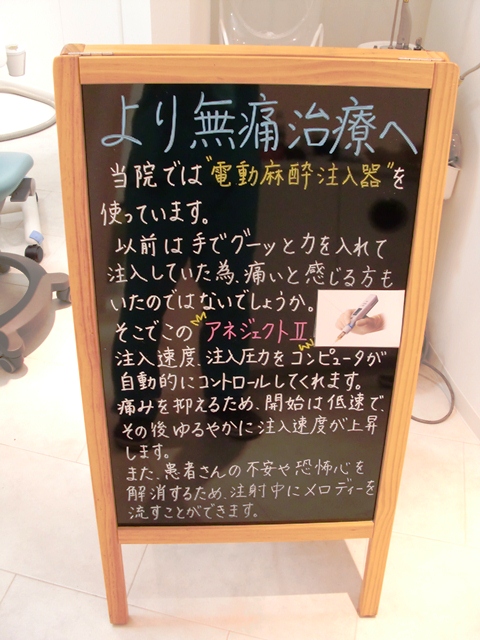 より無痛治療へ
当院では"電動麻酔注入器"を
使っています。
以前は手でグーッと力を入れて
注入していた為、痛いと感じる方も
いたのではないでしょうか。
そこでこのアネジェクトⅡ
注入速度、注入圧力をコンピュータが
自動的にコントロールしてくれます。
痛みを抑えるため、開始は低速で、
その後ゆるやかに注入速度が上昇
します。
また、患者さんの不安や恐怖心を
解消するため、注射中にメロディーを
流すことができます。